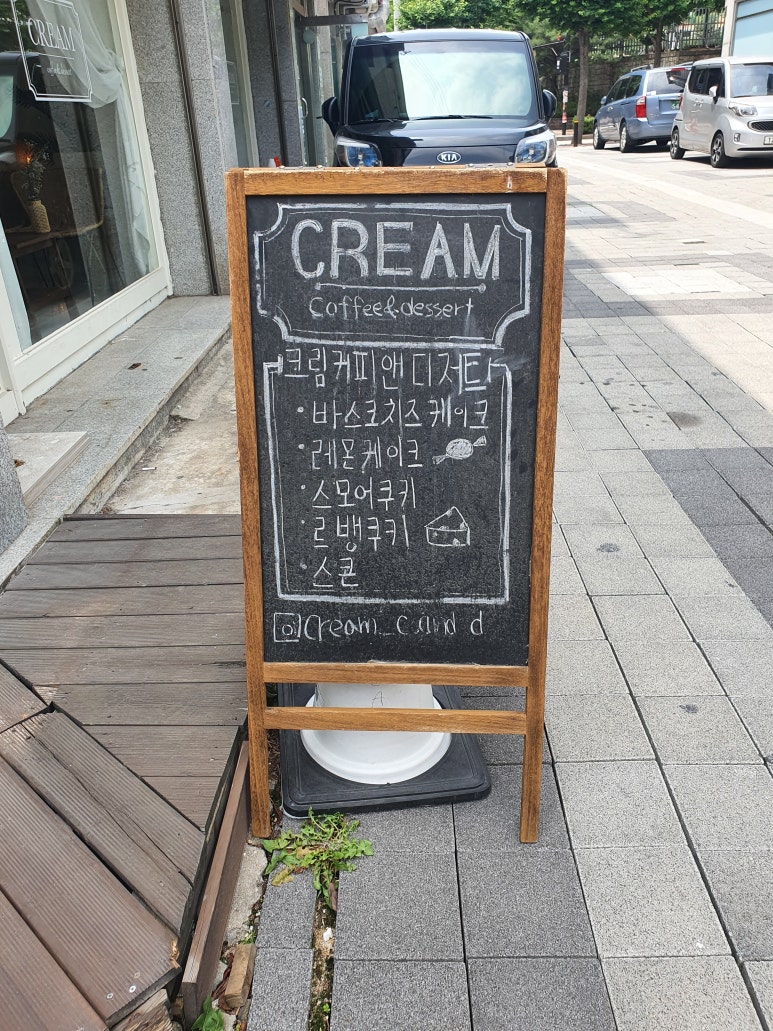 CREAM
KIA
CREAM
Coffee&dessert
크림커피앤디저트
·바스크치즈케이크
·레몬케이크
·스모어쿠키
·르뱅쿠키
·스콘
Cream_c.and d